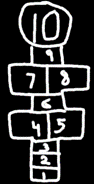 10
9
7 8
6
4 5
3
2
1